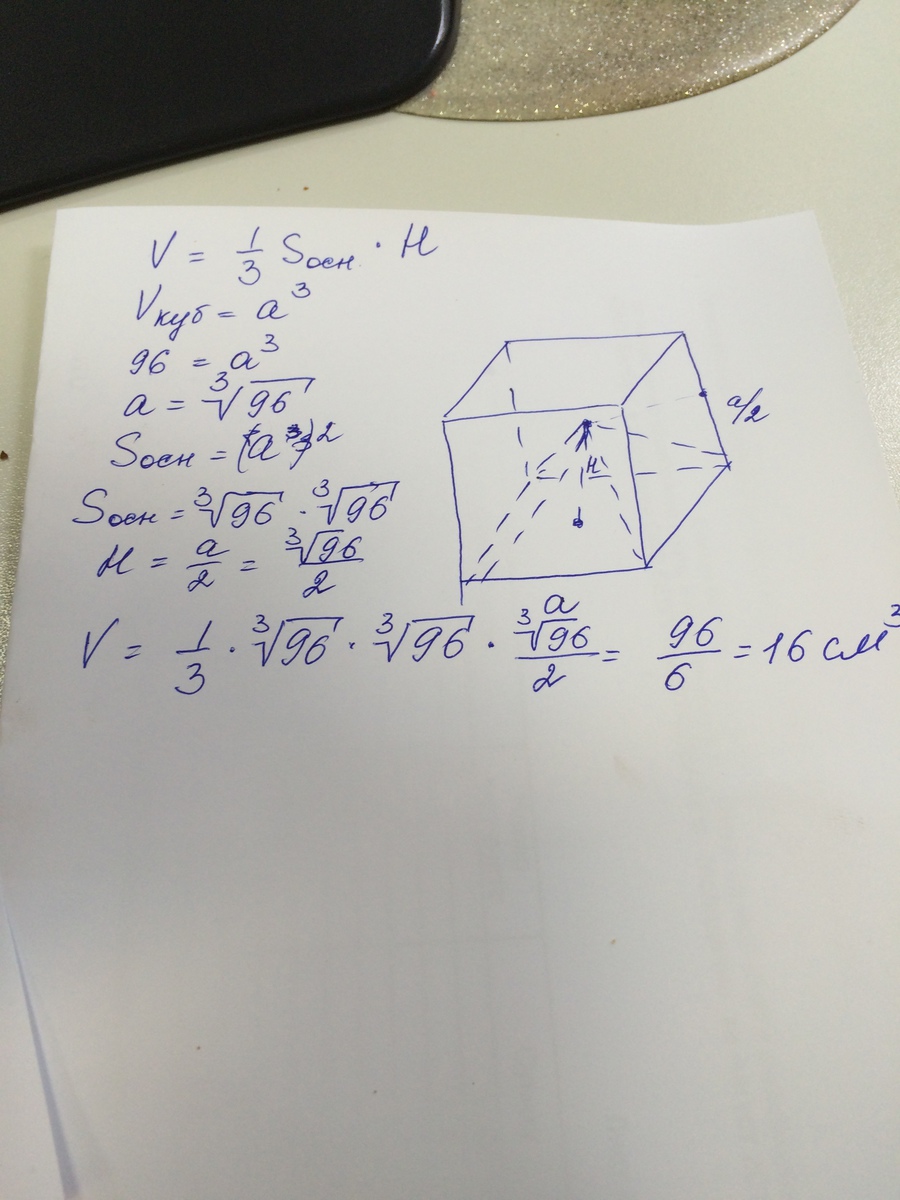 V = 1/3 Sосн · H
Vкуб = a³
96 = a³
a = ³√96
Sосн = (a)²
Sосн = ³√96 · ³√96
H = a/2 = ³√96/2
a/2
H
a
V = 1/3 · ³√96 · ³√96 · ³√96/2 = 96/6 = 16 см³